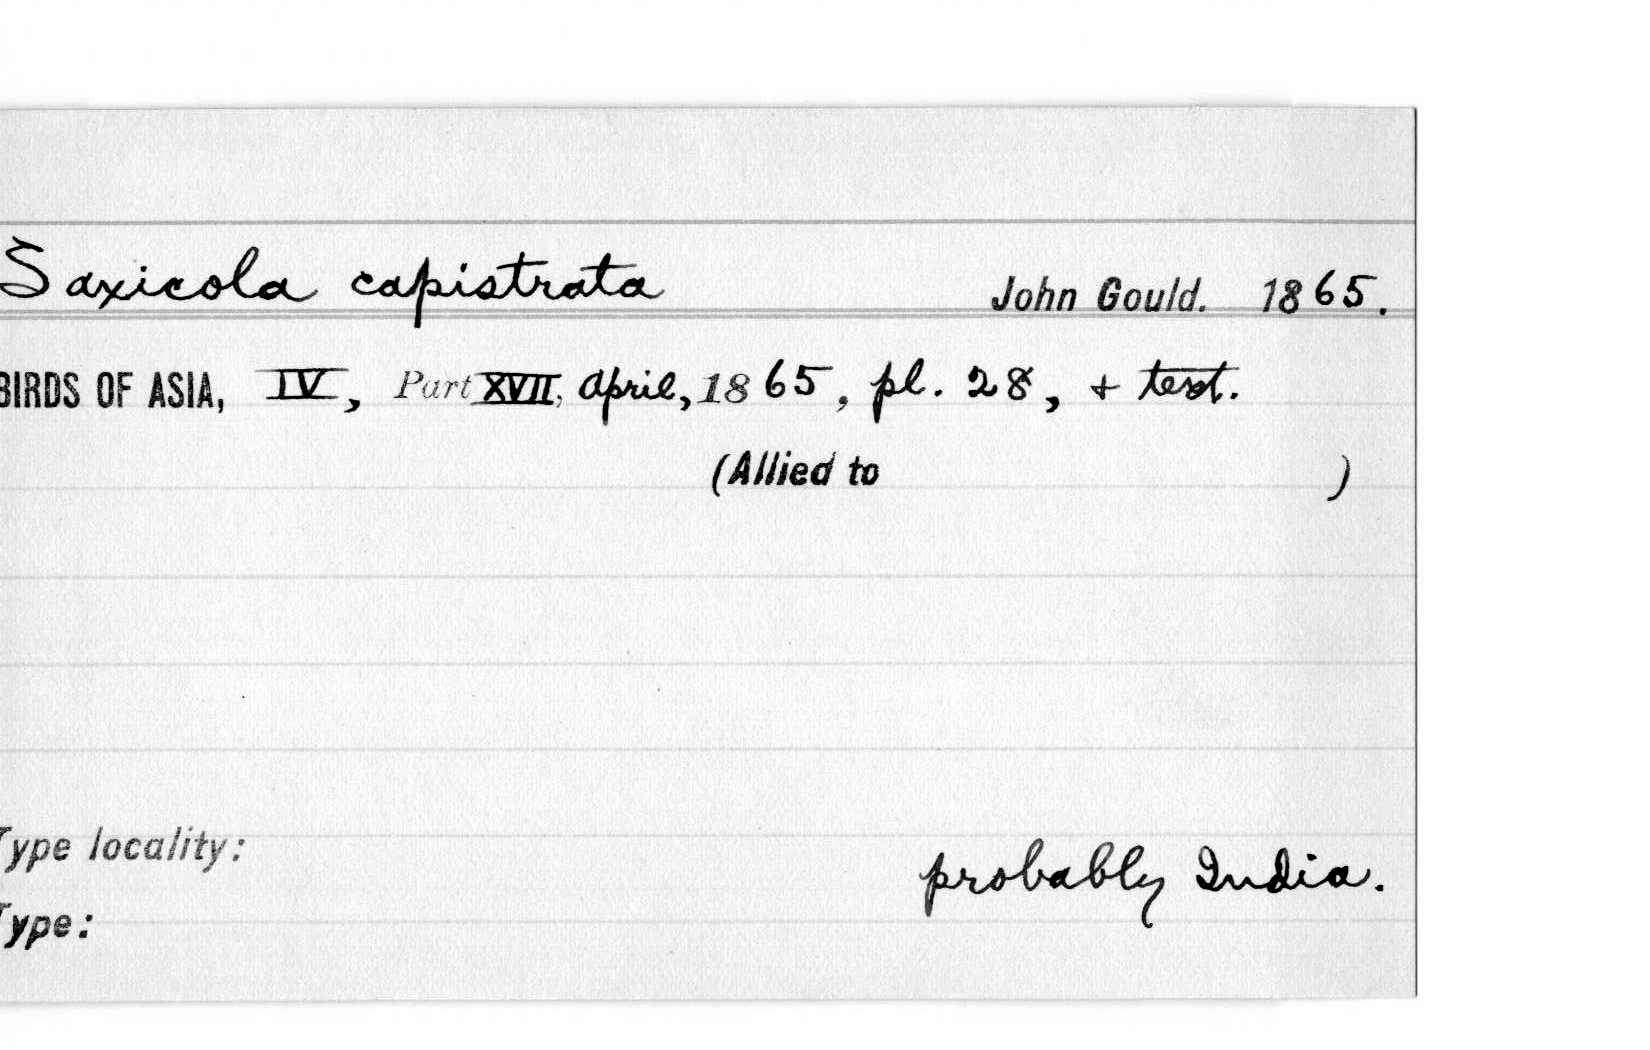 Saxicola capistrata John Gould. 1865.
BIRDS OF ASIA, IV, Part XVII, April, 1865, pl. 28, + text.
(Allied to )
Type locality: probably India.
Type: